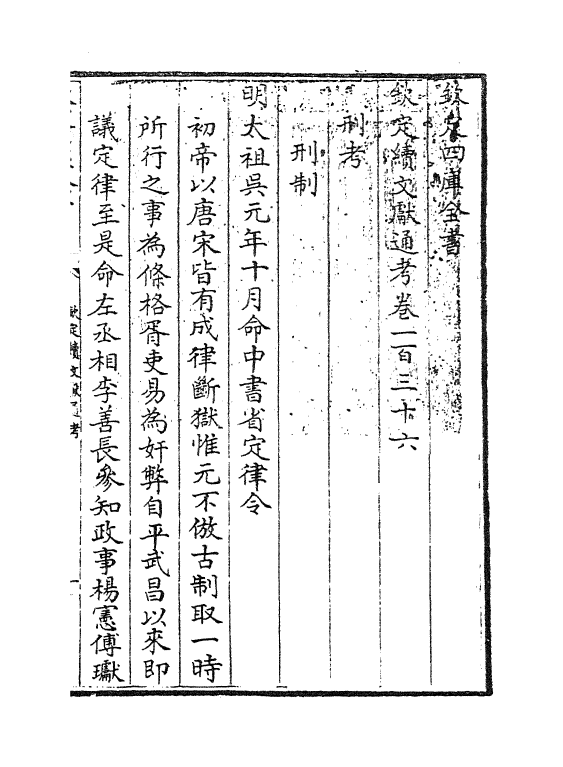 欽定四庫全書
欽定續文獻通考卷一百三十六
刑考
刑制
明太祖吳元年十月命中書省定律令
初帝以唐宋皆有成律斷獄惟元不倣古制取一時
所行之事為條格胥吏易為奸弊自平武昌以來即
議定律至是命左丞相李善長參知政事楊憲傅瓛
欽定續文獻通考
一